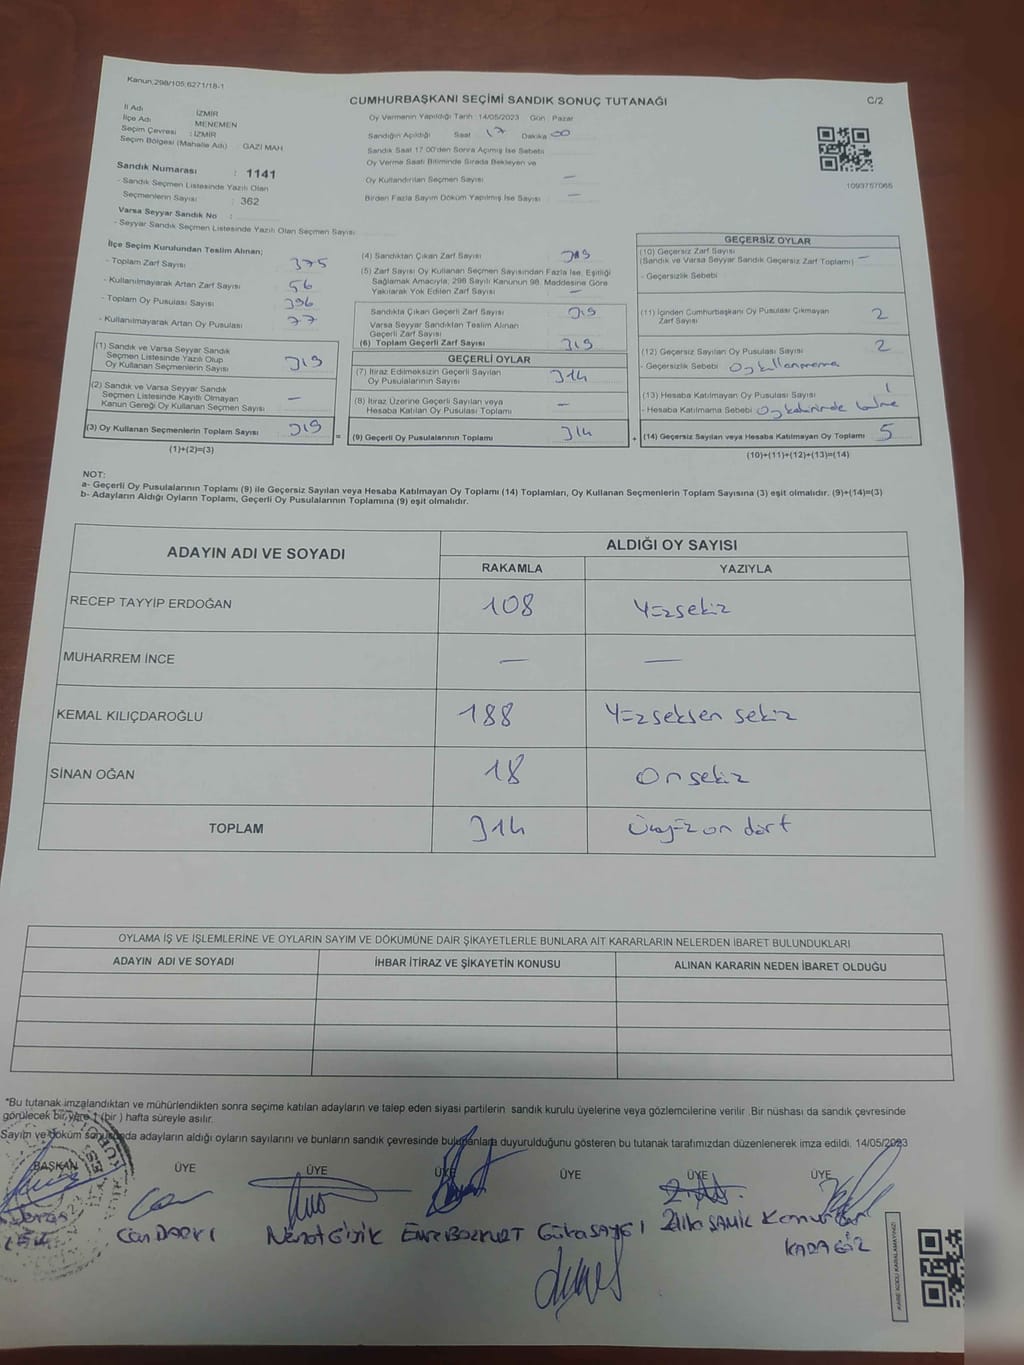 Kanun:298/105,6271/18-1
CUMHURBAŞKANI SEÇİMİ SANDIK SONUÇ TUTANAĞI
C/2
İl Adı : İZMİR
İlçe Adı : MENEMEN
Seçim Çevresi : İZMİR
Seçim Bölgesi (Mahalle Adı) : GAZİ MAH
Oy Vermenin Yapıldığı Tarih: 14/05/2023 Gün : Pazar
Sandığın Açıldığı Saat 17 Dakika 00
Sandık Saat 17.00'den Sonra Açılmış İse Sebebi
Oy Verme Saati Bitiminde Sırada Bekleyen ve
Oy Kullandırılan Seçmen Sayısı —
Birden Fazla Sayım Döküm Yapılmış İse Sayısı —
1093757065
Sandık Numarası : 1141
- Sandık Seçmen Listesinde Yazılı Olan
Seçmenlerin Sayısı : 362
Varsa Seyyar Sandık No :
- Seyyar Sandık Seçmen Listesinde Yazılı Olan Seçmen Sayısı
İlçe Seçim Kurulundan Teslim Alınan;
- Toplam Zarf Sayısı 375
- Kullanılmayarak Artan Zarf Sayısı 56
- Toplam Oy Pusulası Sayısı 396
- Kullanılmayarak Artan Oy Pusulası 77
(1) Sandık ve Varsa Seyyar Sandık
Seçmen Listesinde Yazılı Olup
Oy Kullanan Seçmenlerin Sayısı 319
(2) Sandık ve Varsa Seyyar Sandık
Seçmen Listesinde Kayıtlı Olmayan
Kanun Gereği Oy Kullanan Seçmen Sayısı —
(3) Oy Kullanan Seçmenlerin Toplam Sayısı 319
(1)+(2)=(3)
(4) Sandıktan Çıkan Zarf Sayısı 319
(5) Zarf Sayısı Oy Kullanan Seçmen Sayısından Fazla İse, Eşitliği
Sağlamak Amacıyla; 298 Sayılı Kanunun 98. Maddesine Göre
Yakılarak Yok Edilen Zarf Sayısı —
Sandıkta Çıkan Geçerli Zarf Sayısı 319
Varsa Seyyar Sandıktan Teslim Alınan
Geçerli Zarf Sayısı
(6) Toplam Geçerli Zarf Sayısı 319
GEÇERLİ OYLAR
(7) İtiraz Edilmeksizin Geçerli Sayılan
Oy Pusulalarının Sayısı 314
(8) İtiraz Üzerine Geçerli Sayılan veya
Hesaba Katılan Oy Pusulası Toplamı —
= (9) Geçerli Oy Pusulalarının Toplamı 314
GEÇERSİZ OYLAR
(10) Geçersiz Zarf Sayısı
(Sandık ve Varsa Seyyar Sandık Geçersiz Zarf Toplamı) —
- Geçersizlik Sebebi
(11) İçinden Cumhurbaşkanı Oy Pusulası Çıkmayan
Zarf Sayısı 2
(12) Geçersiz Sayılan Oy Pusulası Sayısı 2
- Geçersizlik Sebebi Oy kullanmama
(13) Hesaba Katılmayan Oy Pusulası Sayısı 1
- Hesaba Katılmama Sebebi Oy
+ (14) Geçersiz Sayılan veya Hesaba Katılmayan Oy Toplamı 5
(10)+(11)+(12)+(13)=(14)
NOT:
a- Geçerli Oy Pusulalarının Toplamı (9) ile Geçersiz Sayılan veya Hesaba Katılmayan Oy Toplamı (14) Toplamları, Oy Kullanan Seçmenlerin Toplam Sayısına (3) eşit olmalıdır. (9)+(14)=(3)
b- Adayların Aldığı Oyların Toplamı, Geçerli Oy Pusulalarının Toplamına (9) eşit olmalıdır.
ADAYIN ADI VE SOYADI
ALDIĞI OY SAYISI
RAKAMLA YAZIYLA
RECEP TAYYİP ERDOĞAN 108 Yüzsekiz
MUHARREM İNCE — —
KEMAL KILIÇDAROĞLU 188 Yüzseksen sekiz
SİNAN OĞAN 18 On sekiz
TOPLAM 314 Üçyüz on dört
OYLAMA İŞ VE İŞLEMLERİNE VE OYLARIN SAYIM VE DÖKÜMÜNE DAİR ŞİKAYETLERLE BUNLARA AİT KARARLARIN NELERDEN İBARET BULUNDUKLARI
ADAYIN ADI VE SOYADI İHBAR İTİRAZ VE ŞİKAYETİN KONUSU ALINAN KARARIN NEDEN İBARET OLDUĞU
*Bu tutanak imzalandıktan ve mühürlendikten sonra seçime katılan adayların ve talep eden siyasi partilerin sandık kurulu üyelerine veya gözlemcilerine verilir. Bir nüshası da sandık çevresinde
görülecek bir yere 1 (bir) hafta süreyle asılır.
Sayım ve döküm sonucunda adayların aldığı oyların sayılarını ve bunların sandık çevresinde bulunanlara duyurulduğunu gösteren bu tutanak tarafımızdan düzenlenerek imza edildi. 14/05/2023
BAŞKAN ÜYE ÜYE ÜYE ÜYE ÜYE ÜYE
Can DAĞVI Nezat Gizik EMRE BOZKURT SAYGI SAMİL
KARAGÖZ
KARE KODU KARALAMAYINIZ!